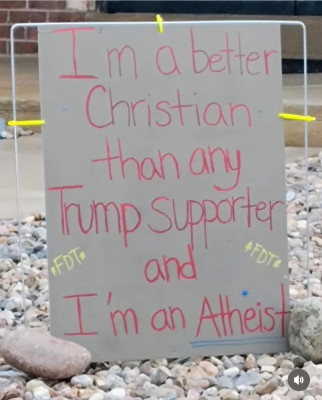 I'm a better
Christian
than any
Trump supporter
*FDT*
*FDT*
and
I'm an Atheist